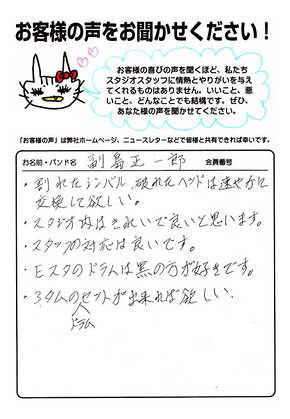 お客様の声をお聞かせください！
お客様の喜びの声を聞くほど、私たち
スタジオスタッフに情熱とやりがいを与え
てくれるものはありません。いいこと、悪
いこと、どんなことでも結構です。ぜひ、
あなた様の声を聞かせてください。
「お客様の声」は弊社ホームページ、ニュースレターなどで皆様と共有できれば幸いです。
お名前・バンド名 副島正一郎 会員番号
・割れたシンバル、破れたヘッドは速やかに
交換して欲しい。
・スタジオ内はきれいで良いと思います。
・スタッフの対応は良いです。
・Eスタのドラムは黒の方が好きです。
・3タムのセットが出来れば欲しい。
ドラム